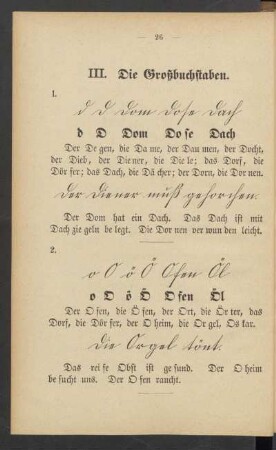 — 26 —
III. Die Großbuchstaben.
1.
d D Dom Dose Dach
d D Dom Do se Dach
Der De gen, die Da me, der Dau men, der Docht,
der Dieb, der Die ner, die Die le; das Dorf, die
Dör fer; das Dach, die Dä cher; der Dorn, die Dor nen.
Der Diener muß gehorchen.
Der Dom hat ein Dach. Das Dach ist mit
Dach zie geln be legt. Die Dor nen ver wun den leicht.
2.
o O ö Ö Ofen Öl
o O ö Ö O fen Öl
Der O fen, die Ö fen, der Ort, die Ör ter, das
Dorf, die Dör fer, der O heim, die Or gel, Os kar.
Die Orgel tönt.
Das rei fe Obst ist ge sund. Der O heim
be sucht uns. Der O fen raucht.